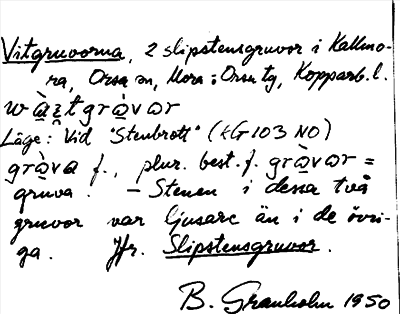 Vitgruvorna, 2 slipstensgruvor i Kallmo-
ra, Orsa sn, Mora o Orsa tg, Kopparb. l.
Läge: Vid "Stenbrott" (KG 103 NO)
f., plur. best. f. =
gruva. – Stenen i dessa två
gruvor var ljusare än i de övri-
ga. Jfr. Slipstensgruvor.
B. Granholm 1950